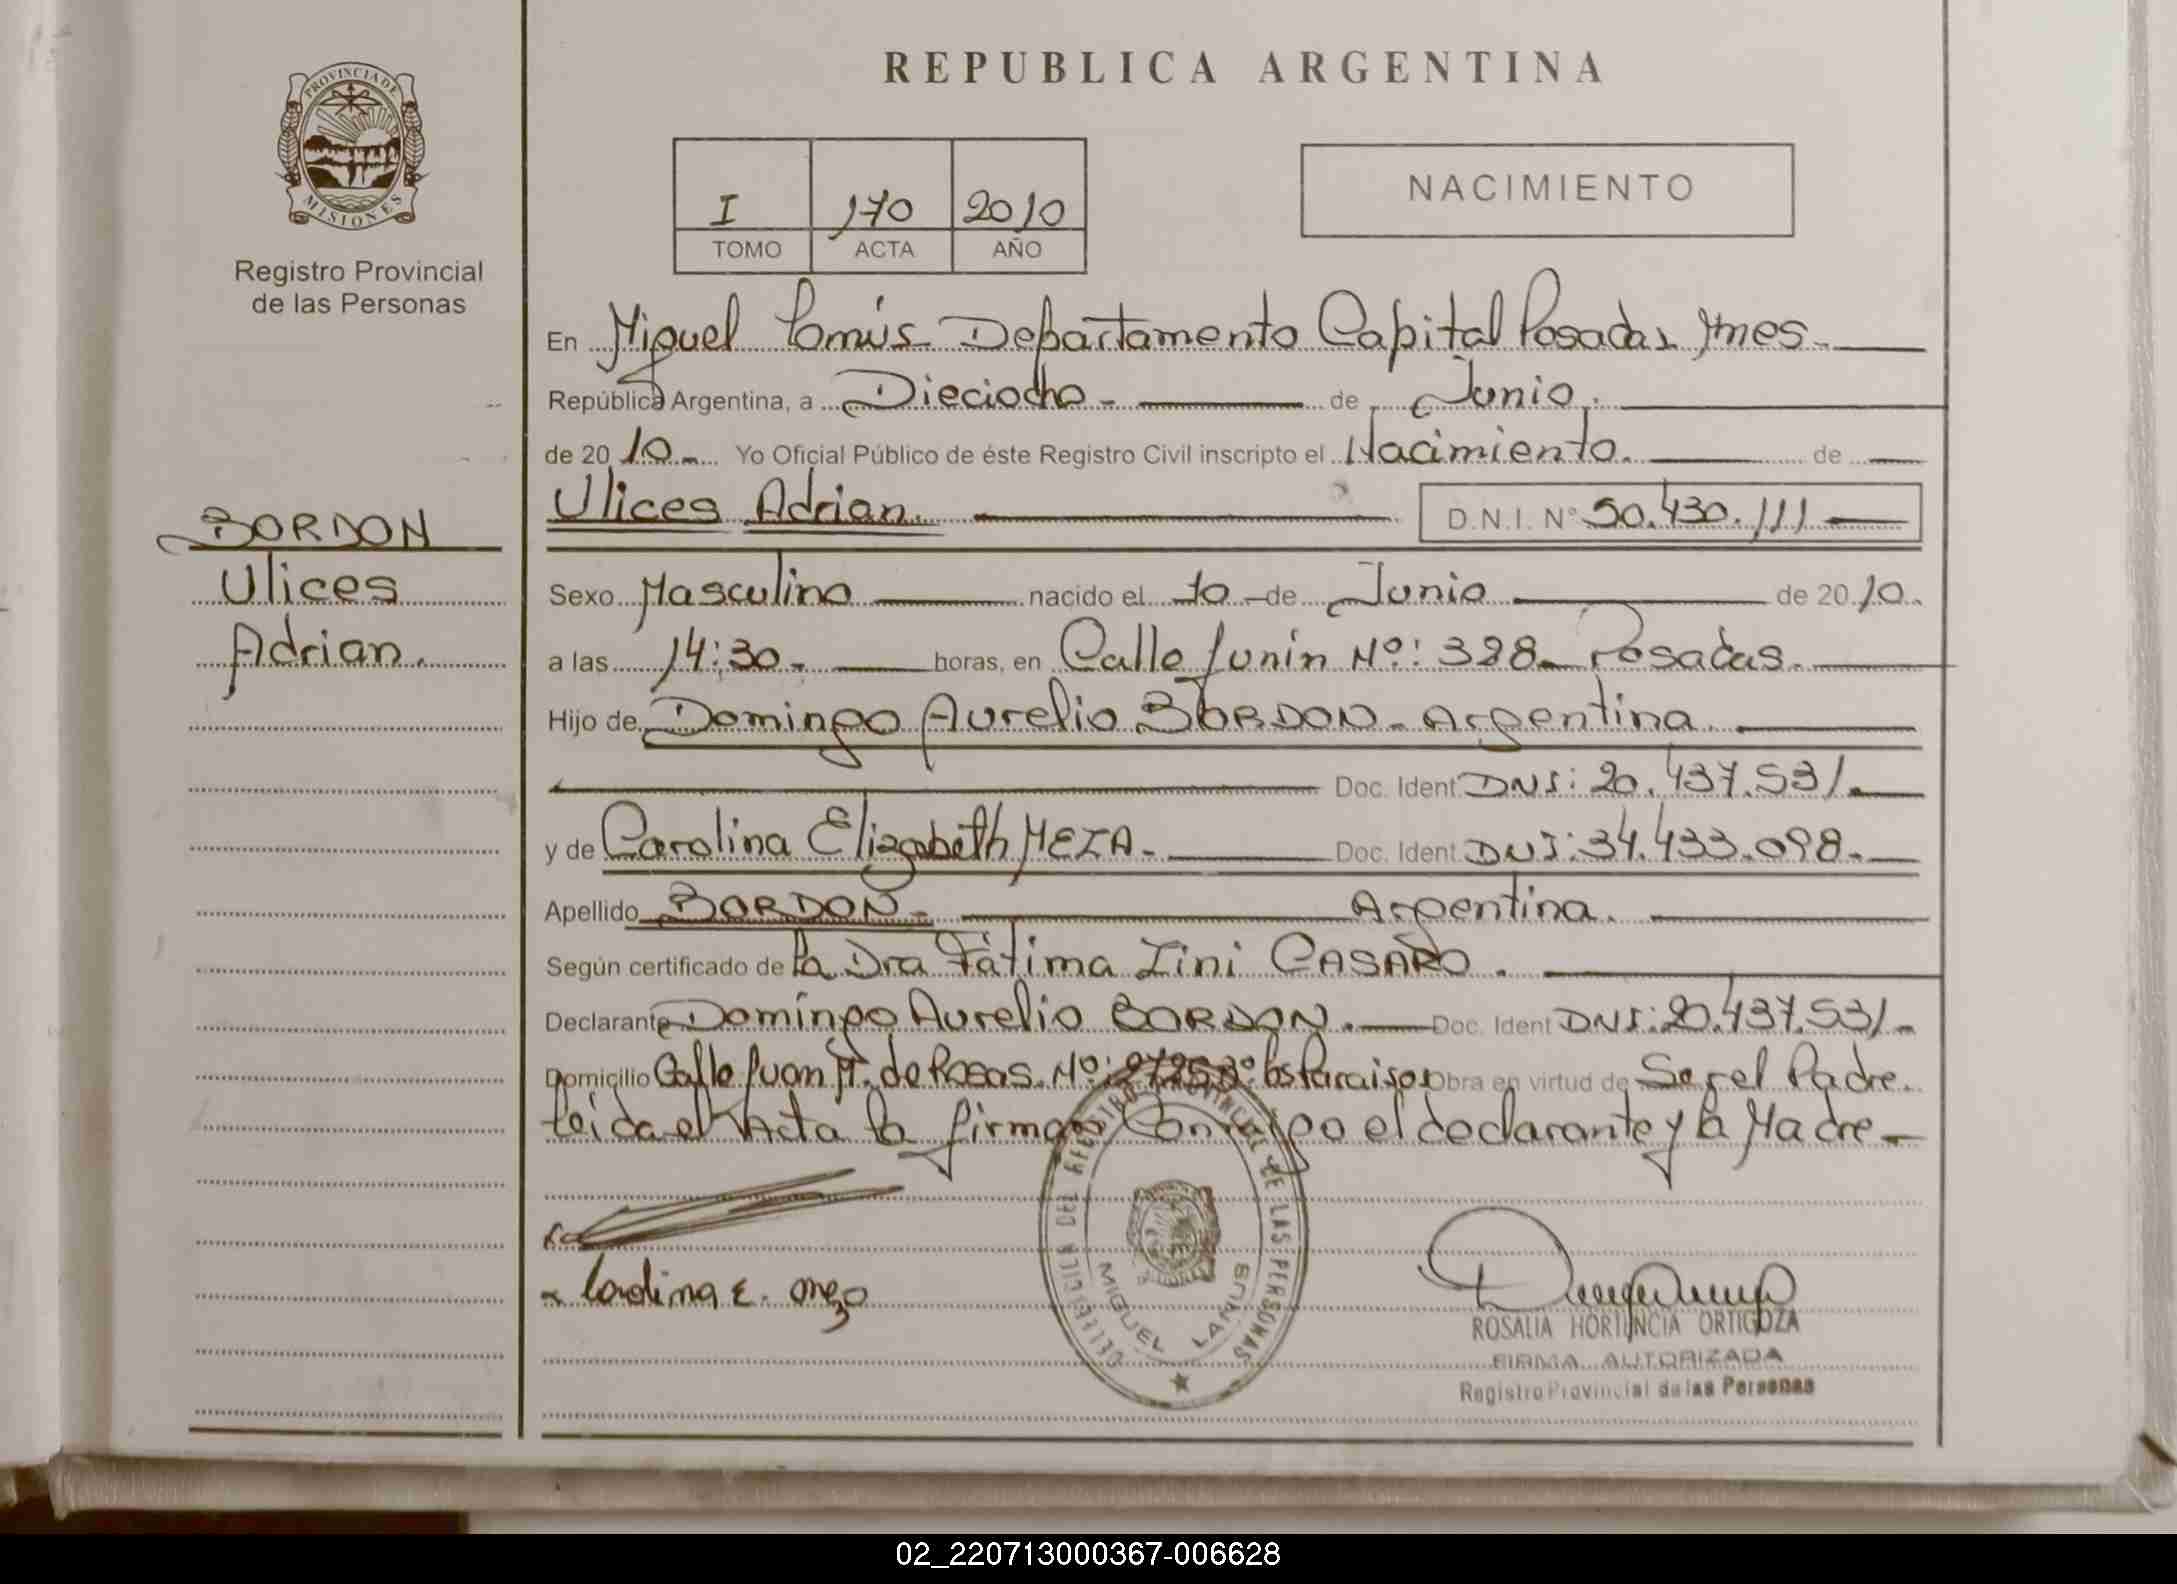 REPUBLICA ARGENTINA
PROVINCIA DE
MISIONES
Registro Provincial
de las Personas
I 170 2010
TOMO ACTA AÑO
NACIMIENTO
En Miguel Lanús Departamento Capital Posadas Mnes.
República Argentina, a Dieciocho - de Junio.
de 20 10.- Yo Oficial Público de éste Registro Civil inscripto el Nacimiento. de
Ulices Adrian. D.N.I. N° 50.430.111
BORDON
Ulices
Adrian.
Sexo Masculino nacido el 10 de Junio de 20 10.
a las 14:30.- horas, en Calle Junin Nº: 328. Posadas.
Hijo de Domingo Aurelio BORDON - Argentina.
Doc. Ident DNI: 20.437.531.
y de Carolina Elizabeth MEZA.- Doc. Ident DNI: 34.433.098.-
Apellido BORDON - Argentina.
Según certificado de la Dra Fátima Zini CASARO.
Declarante Domingo Aurelio BORDON. Doc. Ident DNI: 20.437.531.-
Domicilio Calle Juan M. de Rosas. Nº: Bº los Paraisos Obra en virtud de Ser el Padre.
Leida el Acta la firman Conmigo el declarante y la Madre -
Carolina E. Meza
DELEGACION DEL REGISTRO PROVINCIAL DE LAS PERSONAS
MIGUEL LANUS
ROSALIA HORTENCIA ORTIGOZA
FIRMA AUTORIZADA
Registro Provincial de las Personas
02_220713000367-006628